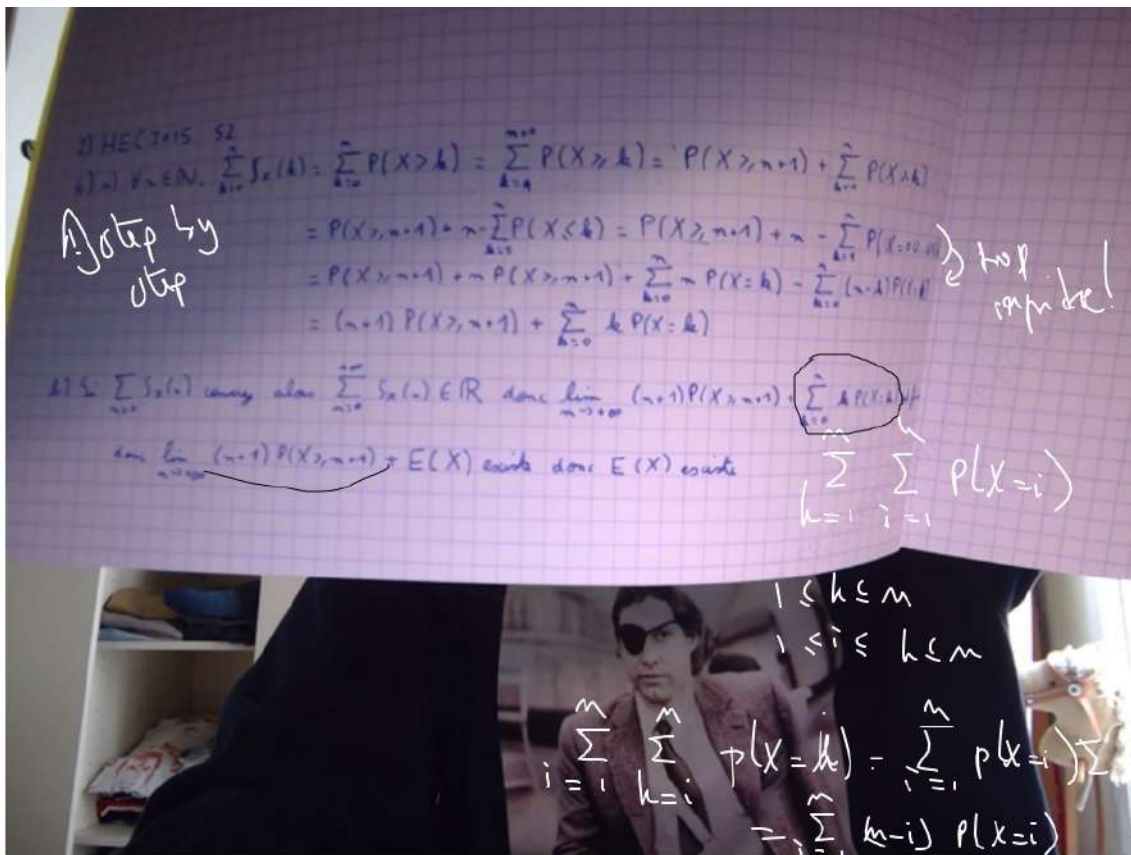 2) HEC 2015 S2
b) a) ∀n ∈ ℕ, ∑_{k=0}^{n} S_x(k) = ∑_{k=0}^{n} P(X > k) = ∑_{k=1}^{n+1} P(X ≥ k) = P(X ≥ n+1) + ∑_{k=1}^{n} P(X ≥ k)
= P(X ≥ n+1) + n - ∑ P(X ≤ k) = P(X ≥ n+1) + n - ∑ P(X =
1) step by
step
trop
rapide!
= P(X ≥ n+1) + n P(X ≥ n+1) + ∑_{k=0}^{n} n P(X = k) - ∑_{k=0}^{n} (n-k) P(X = k)
= (n+1) P(X ≥ n+1) + ∑_{k=0}^{n} k P(X = k)
b) Si ∑_{n≥0} S_x(n) converge alors ∑_{n=0}^{+∞} S_x(n) ∈ ℝ donc lim_{n→+∞} (n+1) P(X ≥ n+1) + ∑_{k=0}^{n} k P(X = k)
donc lim_{n→+∞} (n+1) P(X ≥ n+1) + E(X) existe donc E(X) existe
∑_{k=1}^{n} ∑_{i=1}^{k} P(X = i)
1 ≤ k ≤ n
1 ≤ i ≤ k ≤ n
∑_{i=1}^{n} ∑_{k=i}^{n} p(X = i) = ∑_{i=1}^{n} p(X = i) ∑
= ∑_{i=1}^{n} (n-i) P(X = i)